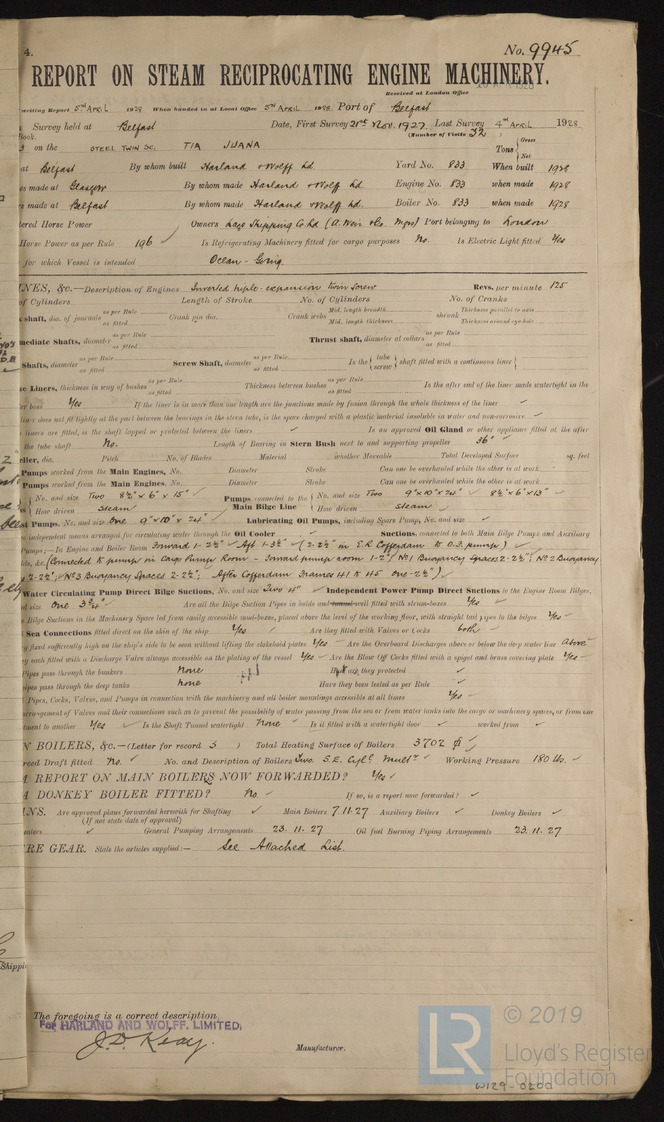 4.
No. 9945
REPORT ON STEAM RECIPROCATING ENGINE MACHINERY.
Received at London Office
writing Report 5th April 1928 When handed in at Local Office 5th April 1928 Port of Belfast
Survey held at Belfast Date, First Survey 21st Nov. 1927 Last Survey 4th April 1928
Book. (Number of Visits 32)
on the STEEL TWIN SC. TIA JUANA Tons { Gross
Net
at Belfast By whom built Harland & Wolff Ld. Yard No. 833 When built 1928
es made at Glasgow By whom made Harland & Wolff Ld. Engine No. 833 when made 1928
rs made at Belfast By whom made Harland & Wolff Ld. Boiler No. 833 when made 1928
tered Horse Power Owners Lago Shipping Co Ld (A. Weir & Co. Mgrs) Port belonging to London
Horse Power as per Rule 196 Is Refrigerating Machinery fitted for cargo purposes No. Is Electric Light fitted Yes
for which Vessel is intended Ocean-Going.
INES, &c.—Description of Engines Inverted triple-expansion twin screw Revs. per minute 125
of Cylinders Length of Stroke No. of Cylinders No. of Cranks
shaft, dia. of journals as per Rule as fitted Crank pin dia. Crank webs Mid. length breadth Mid. length thickness shrunk Thickness parallel to axis Thickness around eye-hole
mediate Shafts, diameter as per Rule as fitted Thrust shaft, diameter at collars as per Rule as fitted
Shafts, diameter as per Rule as fitted Screw Shaft, diameter as per Rule as fitted Is the { tube screw } shaft fitted with a continuous liner {
ze Liners, thickness in way of bushes as per Rule as fitted Thickness between bushes as per Rule as fitted Is the after end of the liner made watertight in the
er boss Yes If the liner is in more than one length are the junctions made by fusion through the whole thickness of the liner
liner does not fit tightly at the part between the bearings in the stern tube, is the space charged with a plastic material insoluble in water and non-corrosive
liners are fitted, is the shaft lapped or protected between the liners Is an approved Oil Gland or other appliance fitted at the after
the tube shaft No. Length of Bearing in Stern Bush next to and supporting propeller 36"
eller, dia. Pitch No. of Blades Material whether Moveable Total Developed Surface sq. feet
Pumps worked from the Main Engines, No. Diameter Stroke Can one be overhauled while the other is at work
Pumps worked from the Main Engines, No. Diameter Stroke Can one be overhauled while the other is at work
No. and size Two 8½" x 6" x 15" Pumps connected to the Main Bilge Line { No. and size Two 9" x 10" x 24" 8½" x 6" x 13"
How driven steam How driven steam
Pumps, No. and size One 9" x 10" x 24" Lubricating Oil Pumps, including Spare Pump, No. and size
independent means arranged for circulating water through the Oil Cooler Suctions, connected to both Main Bilge Pumps and Auxiliary
Pumps;—In Engine and Boiler Room Forward 1-2½" Aft 1-3½" (2-2½" in E.R. Cofferdam to O.F. pump)
lds, &c. (Connected to pump in Cargo Pump Room - Forward pump room 1-2" No 1 Buoyancy Spaces 2-2½"; No 2 Buoyancy
2-2½"; No 3 Buoyancy Spaces 2-2½"; After Cofferdam Frames 41 to 45 one-2½")
Water Circulating Pump Direct Bilge Suctions, No. and size Two 4" Independent Power Pump Direct Suctions to the Engine Room Bilges,
nd size One 3¾" Are all the Bilge Suction Pipes in holds and tunnel well fitted with strum-boxes Yes
Bilge Suctions in the Machinery Space led from easily accessible mud-boxes, placed above the level of the working floor, with straight tail pipes to the bilges Yes
Sea Connections fitted direct on the skin of the ship Yes Are they fitted with Valves or Cocks both
y fixed sufficiently high on the ship's side to be seen without lifting the stokehold plates Yes Are the Overboard Discharges above or below the deep water line Above
y each fitted with a Discharge Valve always accessible on the plating of the vessel Yes Are the Blow Off Cocks fitted with a spigot and brass covering plate Yes
Pipes pass through the bunkers None How are they protected
ipes pass through the deep tanks None Have they been tested as per Rule
Pipes, Cocks, Valves, and Pumps in connection with the machinery and all boiler mountings accessible at all times Yes
arrangement of Valves and their connections such as to prevent the possibility of water passing from the sea or from water tanks into the cargo or machinery spaces, or from one
tment to another Yes Is the Shaft Tunnel watertight None Is it fitted with a watertight door worked from
N BOILERS, &c.—(Letter for record S) Total Heating Surface of Boilers 3702
ced Draft fitted No. No. and Description of Boilers Two. S.E. Cyl. Mult. Working Pressure 180 lbs.
A REPORT ON MAIN BOILERS NOW FORWARDED? Yes
A DONKEY BOILER FITTED? No. If so, is a report now forwarded?
NS. Are approved plans forwarded herewith for Shafting Main Boilers 7.11.27 Auxiliary Boilers Donkey Boilers
(If not state date of approval)
eaters General Pumping Arrangements 23.11.27 Oil fuel Burning Piping Arrangements 23.11.27
RE GEAR. State the articles supplied:— See Attached List.
Shippi
The foregoing is a correct description,
For HARLAND AND WOLFF, LIMITED.
Manufacturer.
LR
© 2019
Lloyd's Register
Foundation
W129-0200